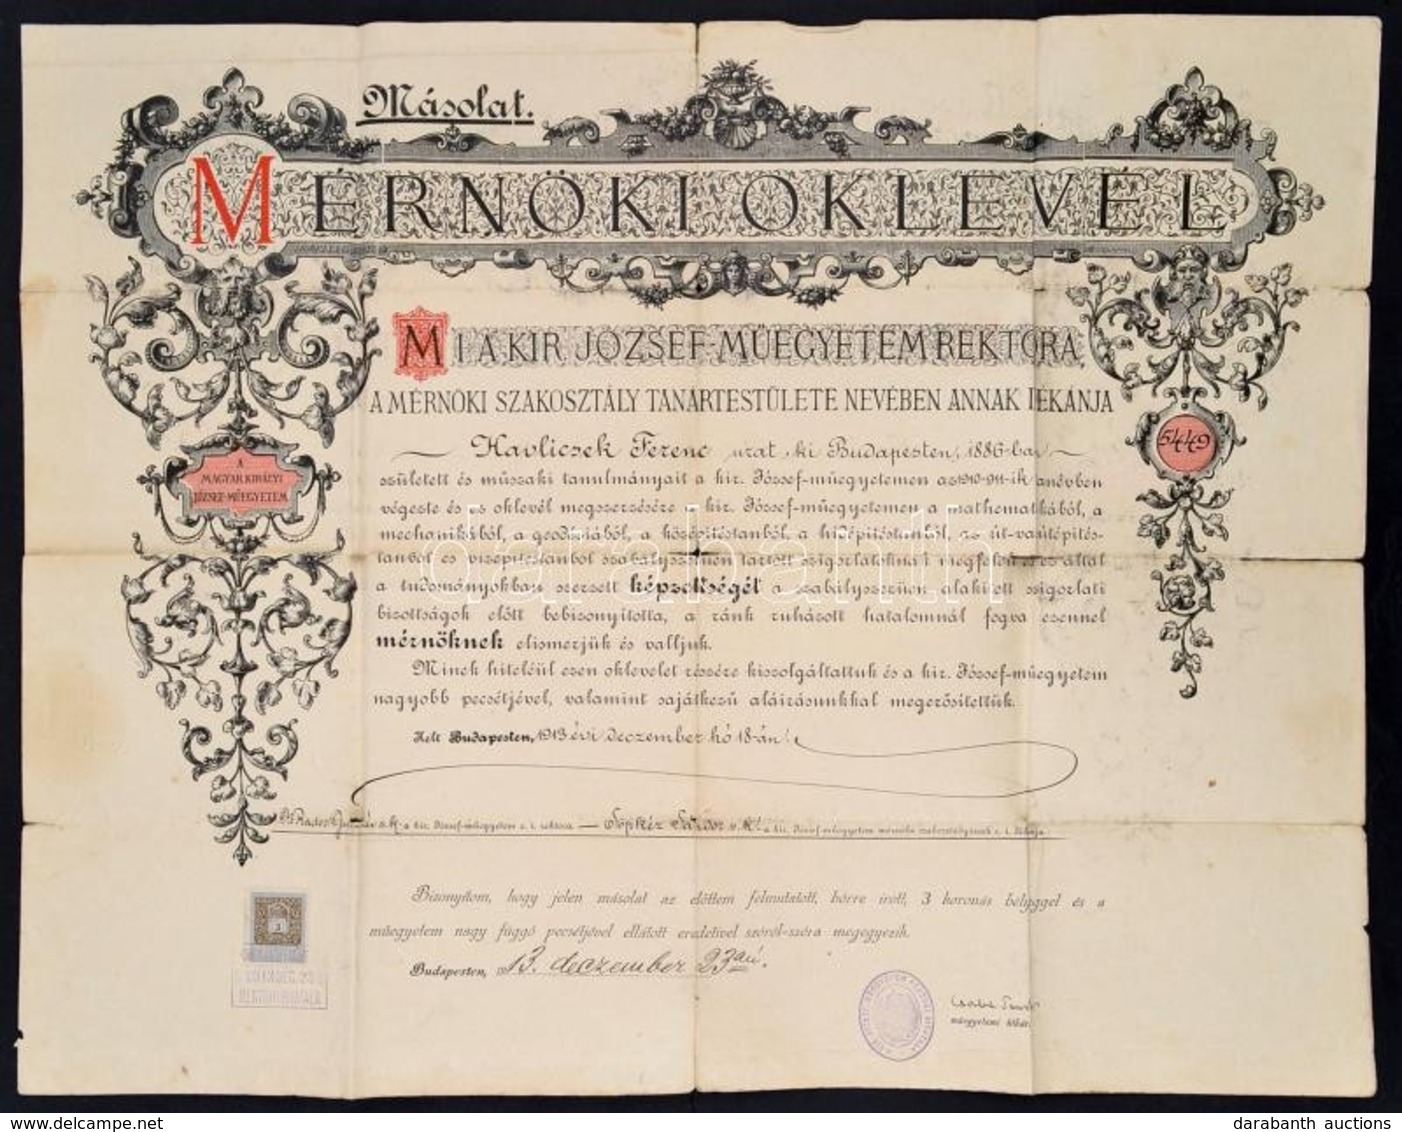 Másolat.
MÉRNÖKI OKLEVÉL
MI A KIR JÓZSEF-MŰEGYETEM REKTORA,
A MÉRNÖKI SZAKOSZTÁLY TANÁRTESTÜLETE NEVÉBEN ANNAK DÉKÁNJA
Havlicsek Ferenc urat, ki Budapesten, 1886-ban
született és műszaki tanulmányait a kir. József-műegyetemen az 1910-911-ik tanévben
végezte és az oklevél megszerzésére a kir. József-műegyetemen a mathematikából, a
mechanikából, a geodésiából, a középítéstanból, a hídépítéstanból, az út-vasútépítés-
tanból és vízépítéstanból szabályszerűen tartott szigorlatokon megfelelvén ez által
a tudományokban szerzett képzettségét a szabályszerűen alakított szigorlati
bizottságok előtt bebizonyította, a ránk ruházott hatalomnál fogva ezennel
mérnöknek elismerjük és valljuk.
Minek hiteléül ezen oklevelet részére kiszolgáltattuk és a kir. József-műegyetem
nagyobb pecsétjével, valamint sajátkezű aláírásunkkal megerősítettük.
Kelt Budapesten, 1913 évi deczember hó 18-án.
A
MAGYAR KIRÁLYI
JÓZSEF-MŰEGYETEM
5449
s. k. a kir. József-műegyetem e. i. rektora — s. k. a kir. József-műegyetem mérnöki szakosztályának e. i. dékánja
Bizonyítom, hogy jelen másolat az előttem felmutatott, bőrre írott, 3 koronás bélyeggel és a
műegyetem nagy függő pecsétjével ellátott eredetivel szóról-szóra megegyezik.
Budapesten, 1913. deczember 23 án.
műegyetemi titkár
darabanth
www.delcampe.net
darabanth auctions